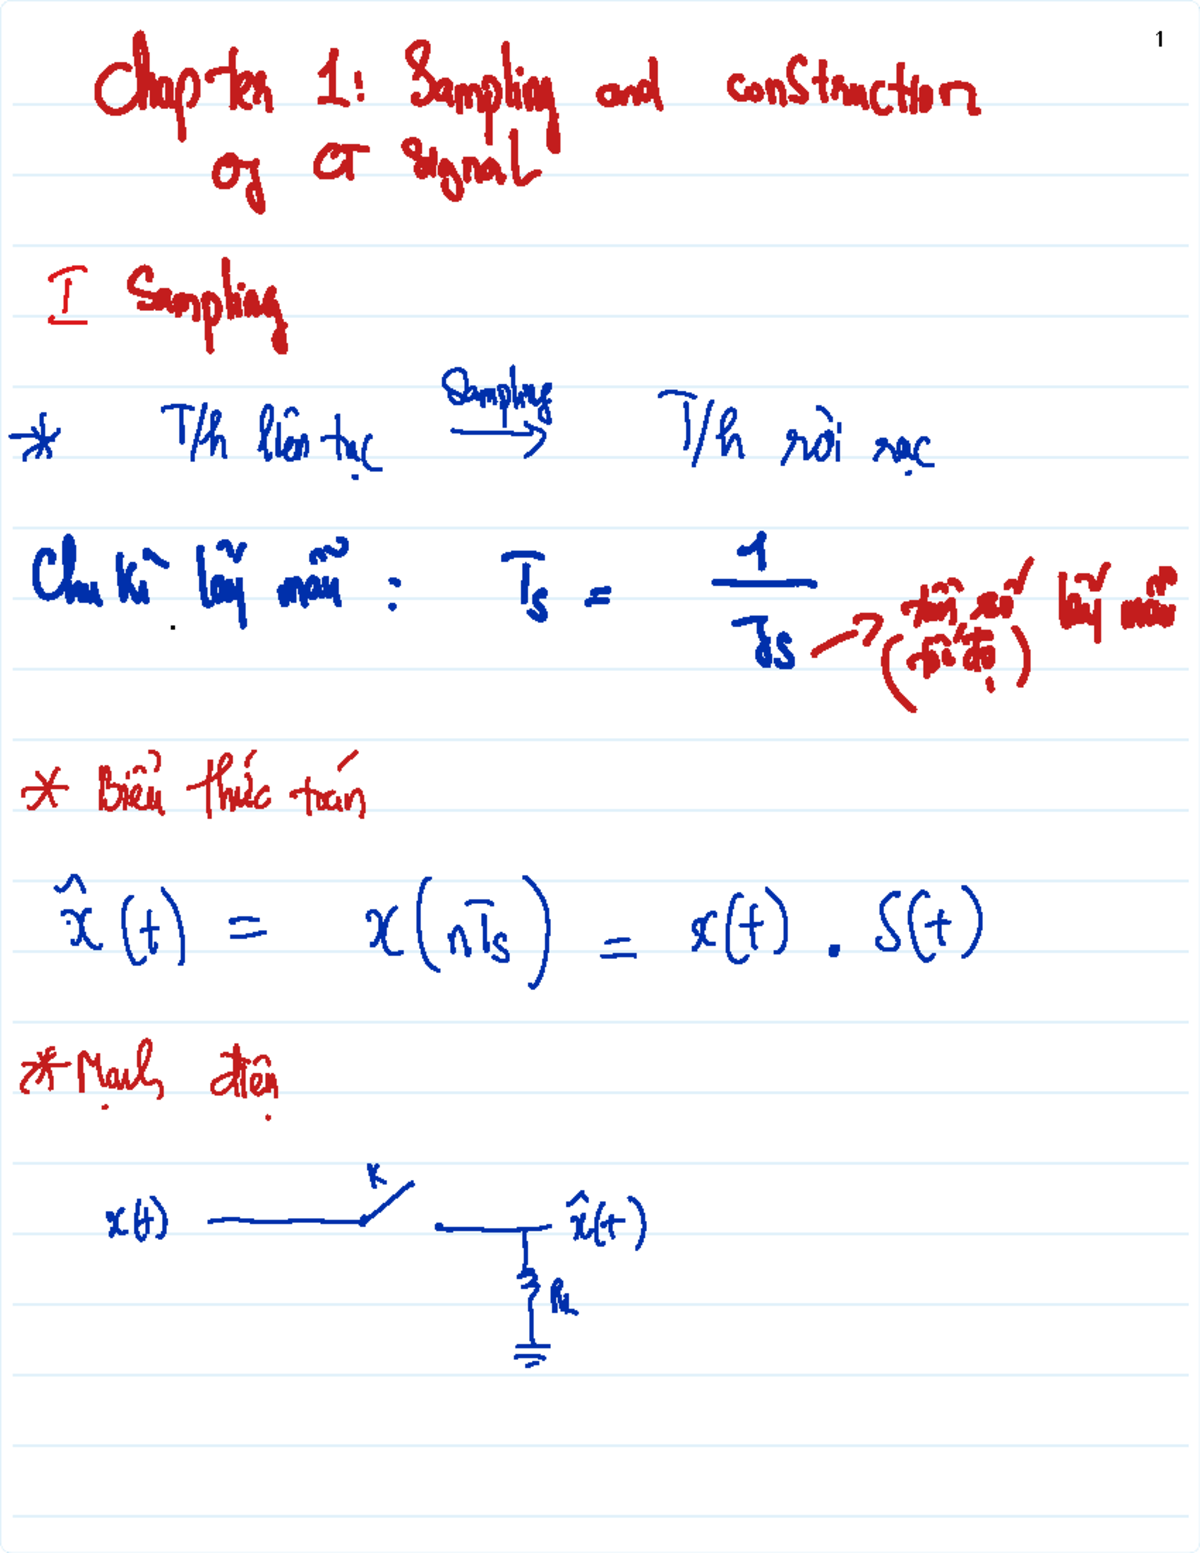 1
Chapter 1: Sampling and construction
of CT Signal
I Sampling
* T/h liên tục Sampling → T/h rời rạc
Chu kì lấy mẫu : Ts = 1/fs → tần số (tốc độ) lấy mẫu
* Biểu thức toán
x̂(t) = x(nTs) = x(t) . S(t)
* Mạch điện
x(t) K x̂(t)
RL